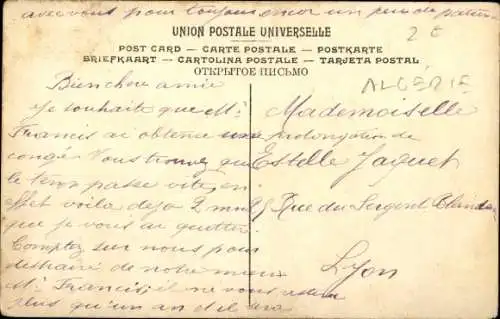 avec vous pour toujours
2 €
UNION POSTALE UNIVERSELLE
POST CARD — CARTE POSTALE — POSTKARTE
BRIEFKAART — CARTOLINA POSTALE — TARJETA POSTAL
ОТКРЫТОЕ ПИСЬМО
ALGÉRIE
Bien chère amie
Je souhaite que Mr
Francis ai obtenu une prolongation de
congé. Vous trouvez que
le temps passe vite, en
effet voila deja 2 mois
que je vous ai quitter.
Comptez sur nous pour
de notre mieux
Mr Francis, il ne vous reste
plus qu'un an et il sera
Mademoiselle
Estelle Jaquet
25 Rue du Sergent Blandan
Lyon